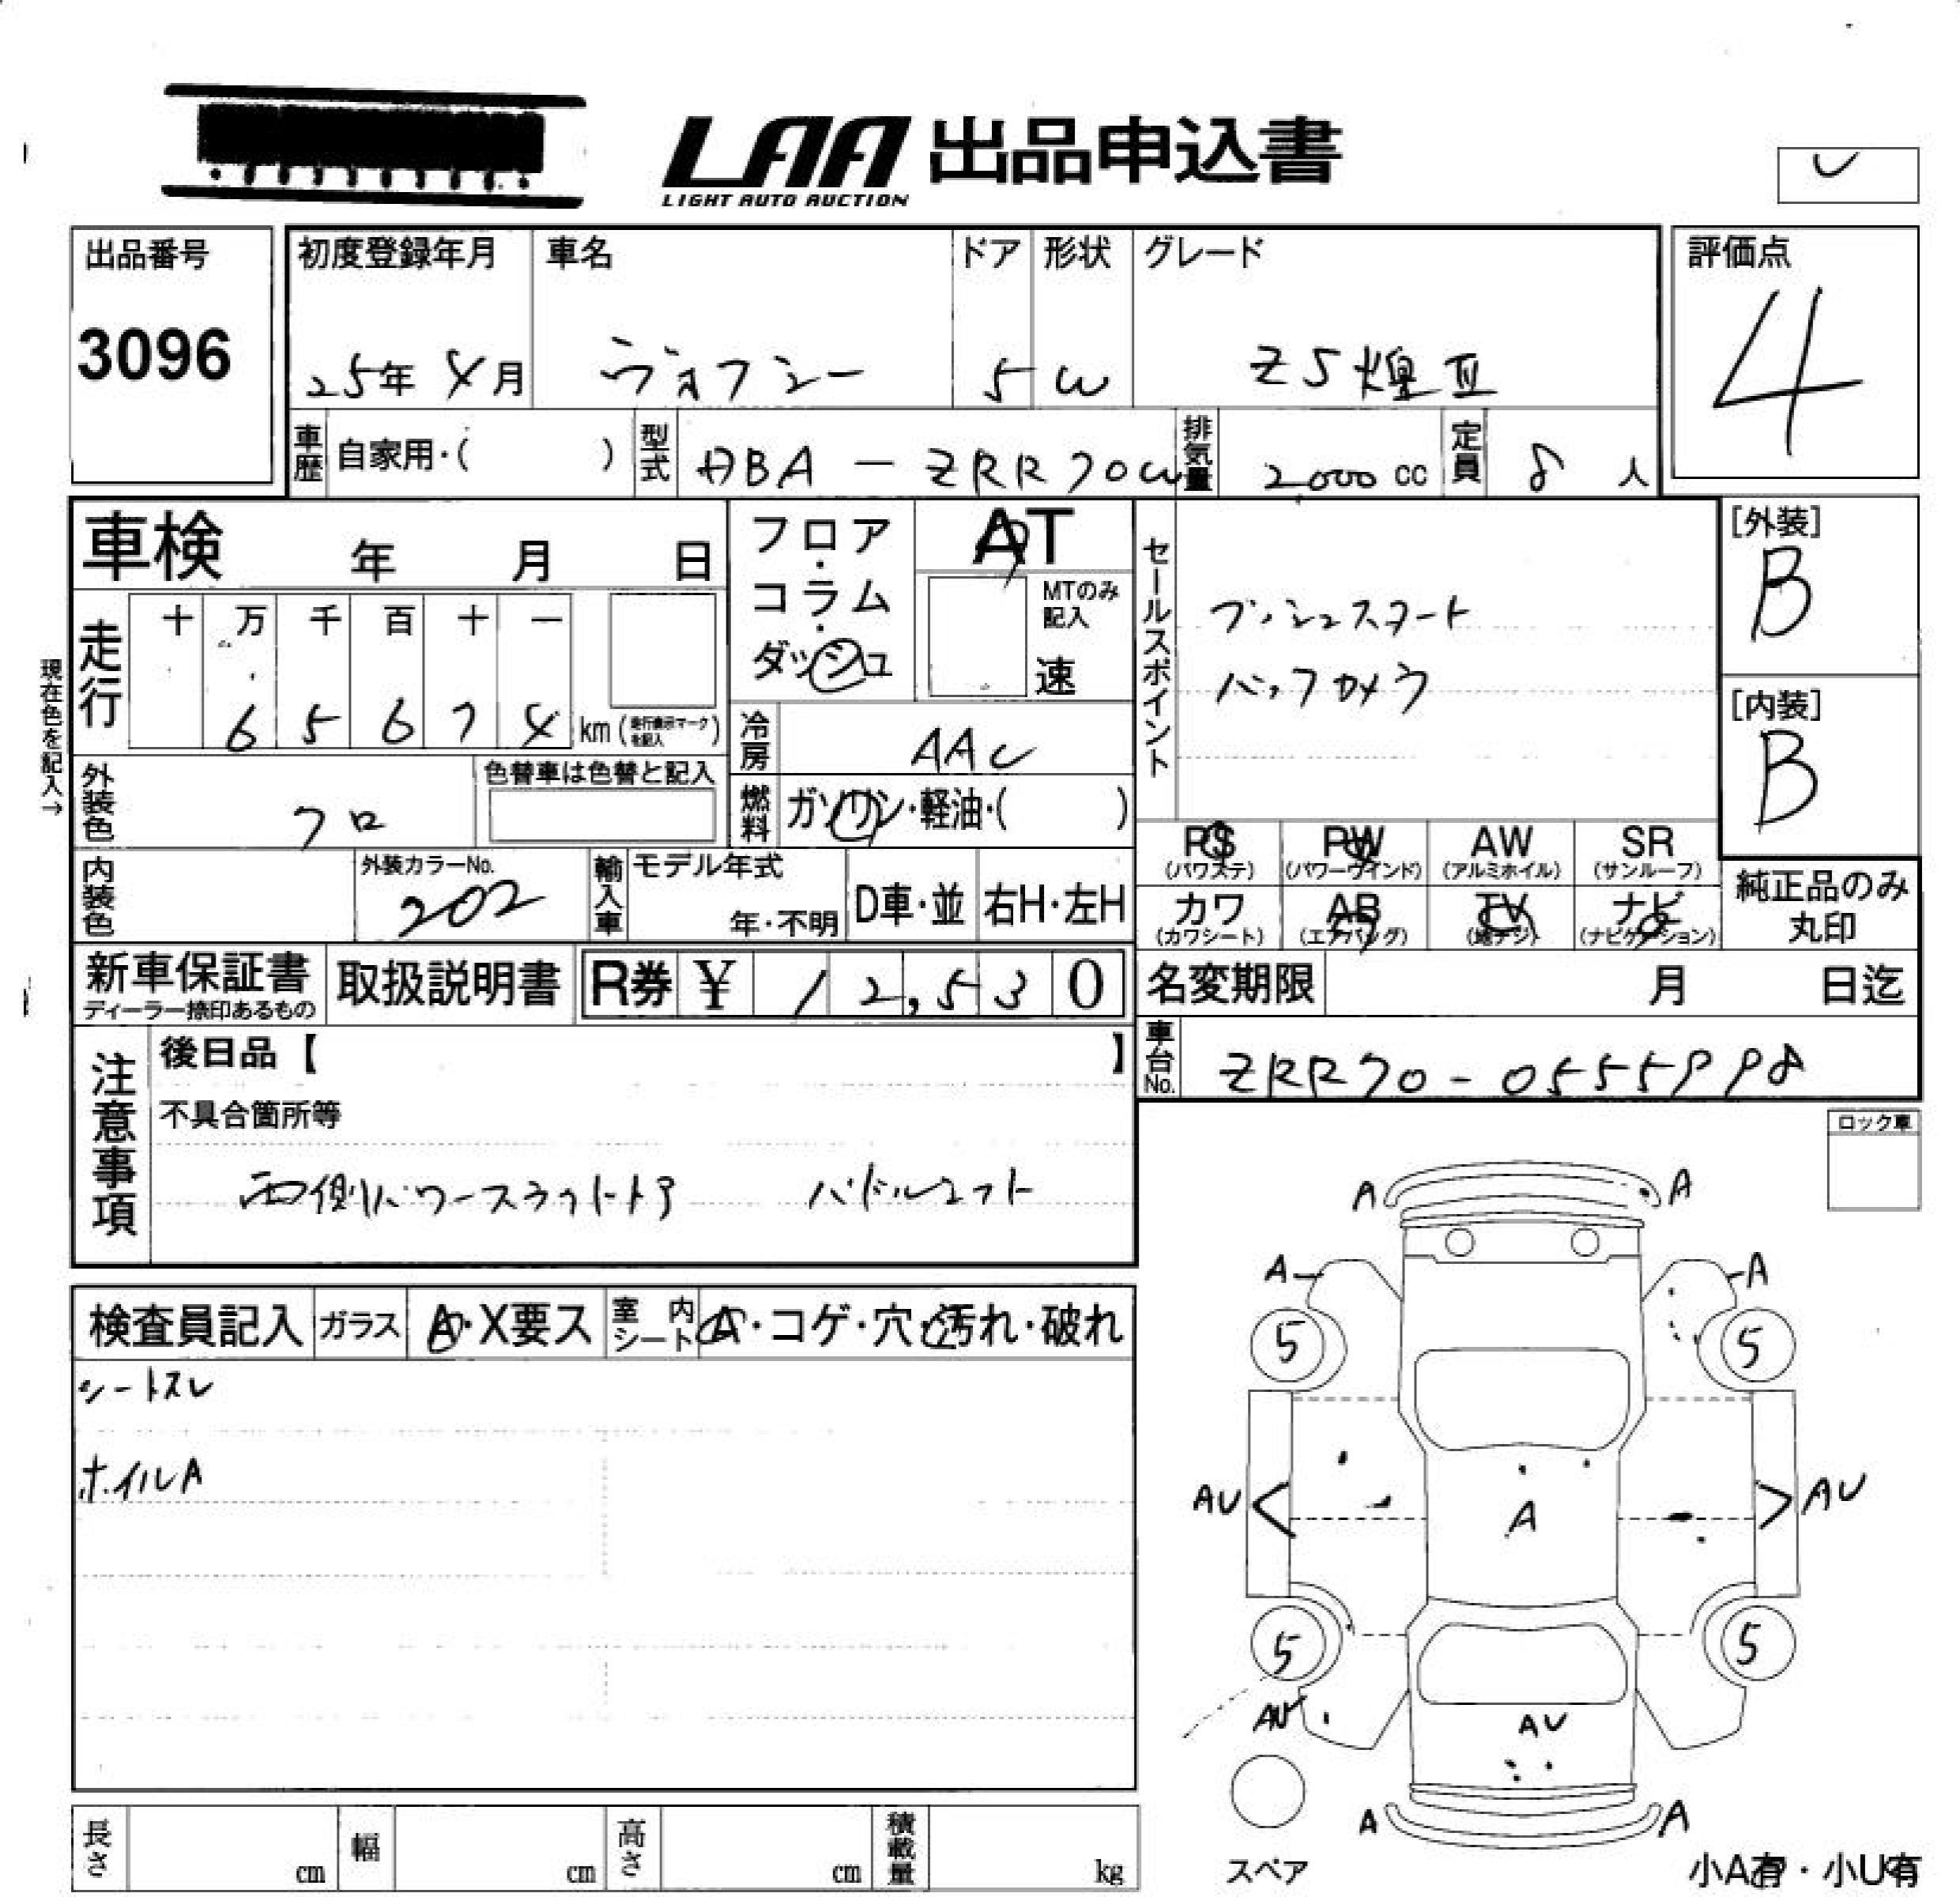 LAA 出品申込書
LIGHT AUTO AUCTION
出品番号
3096
初度登録年月
25年 4月
車名
ヴォクシー
ドア
5
形状
W
グレード
ZS煌Ⅲ
評価点
4
車歴 自家用・( )
型式 DBA-ZRR70W
排気量 2,000 cc
定員 8 人
車検 年 月 日
フロア・コラム・ダッシュ
AT
MTのみ記入
速
セールスポイント
プッシュスタート
バックカメラ
[外装]
B
[内装]
B
現在色を記入→
走行 十 万 千 百 十 一
6 5 6 7 4 km (走行表示マークを記入)
冷房 AAC
外装色 クロ
色替車は色替と記入
燃料 ガソリン・軽油・( )
PS (パワステ) PW (パワーウインド) AW (アルミホイル) SR (サンルーフ)
カワ (カワシート) AB (エアバッグ) TV (地デジ) ナビ (ナビゲーション)
純正品のみ丸印
内装色
外装カラーNo. 202
輸入車 モデル年式 年・不明 D車・並 右H・左H
新車保証書 ディーラー捺印あるもの
取扱説明書
R券 ¥ 12,530
名変期限 月 日迄
車台No. ZRR70-0555998
注意事項
後日品【 】
不具合箇所等
両側パワースライドドア パドルシフト
ロック車
検査員記入 ガラス A・X要ス 室内シート A・コゲ・穴・汚れ・破れ
シートスレ
ホイルA
A A
A A
5 5
AU A AU
5 5
AU AU
A A
スペア
小A有・小U有
長さ cm 幅 cm 高さ cm 積載量 kg